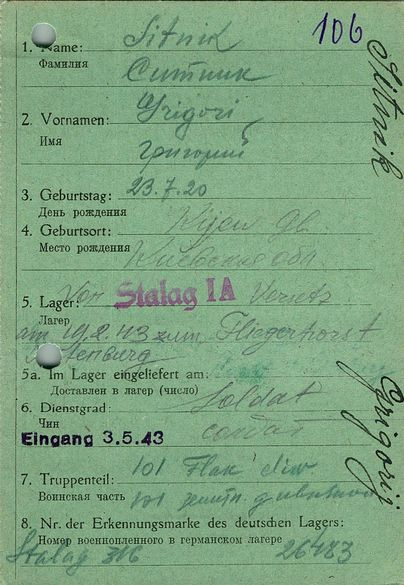 106
1. Name: Sitnik
Фамилия Ситник
2. Vornamen: Grigori
Имя Григорий
3. Geburtstag: 23.7.20
День рождения
4. Geburtsort: Kijew
Место рождения Киевская обл.
5. Lager: Von Stalag IA Versetz
Лагерь
am 19.2.43 zum Fliegerhorst
5a. Im Lager eingeliefert am:
Доставлен в лагерь (число)
6. Dienstgrad: Soldat
Чин солдат
Eingang 3.5.43
7. Truppenteil: 101 Flak div
Воинская часть 101 зенитн.
8. Nr. der Erkennungsmarke des deutschen Lagers:
Номер военнопленного в германском лагере
Stalag 316 26483
Sitnik
Grigorij